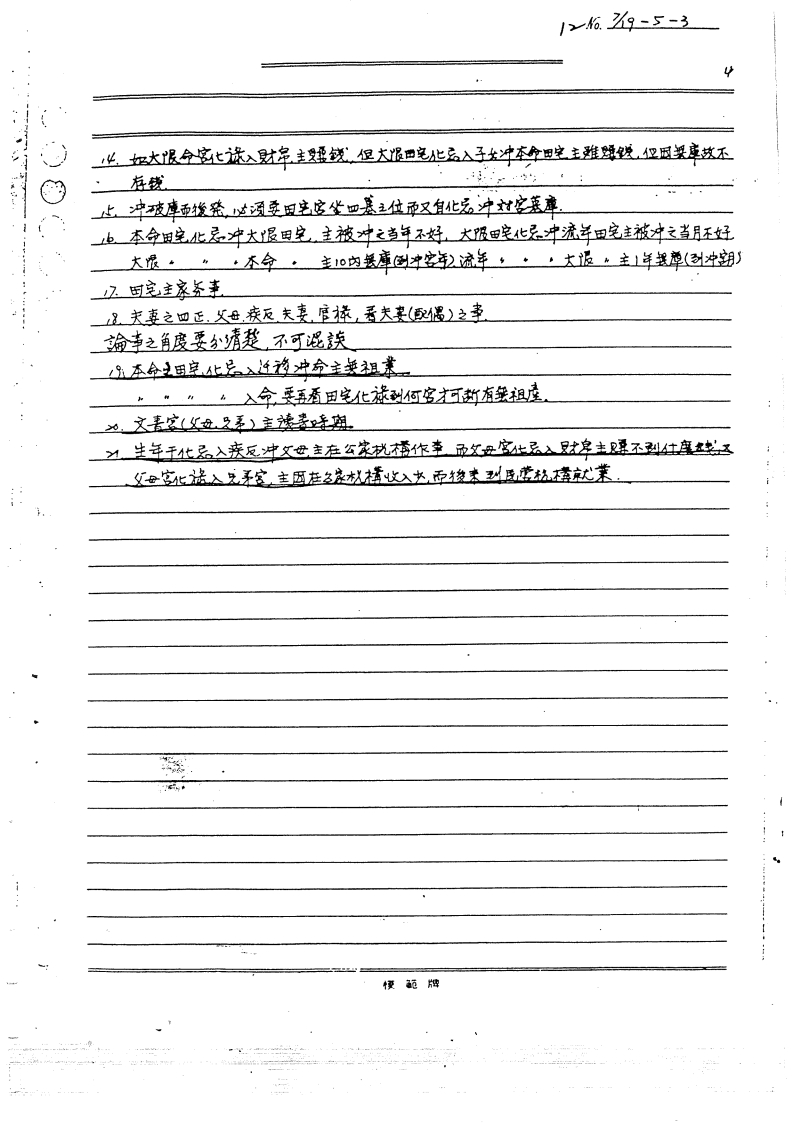 12 No. 7/19-5-3
4
14. 如大限命宮化祿入財帛,主賺錢,但大限田宅化忌入子女冲本命田宅主雖賺錢,但因無庫故不
存錢.
15. 冲破庫而後発,必須要田宅宮坐四墓之位而又自化忌冲对宮墓庫.
16. 本命田宅化忌冲大限田宅,主被冲之当年不好,大限田宅化忌冲流年田宅主被冲之当月不好
大限 〃 〃 〃本命 〃 主10内無庫(到冲宮年)流年 〃 〃 〃 大限 〃主1年無庫(到冲宮月)
17. 田宅主家务事.
18. 夫妻之四正.父母.疾厄夫妻,官祿,看夫妻(配偶)之事.
論事之角度要分清楚,不可混談
19. 本命田宅,化忌入迁移冲命主無祖業.
〃 〃 〃 〃 入命,要再看田宅化祿到何宮才可断有無祖產.
20. 文書宮(父母.兄弟)主讀書時期.
21. 生年干化忌入疾厄冲父母主在公家机構作事.而父母宮化忌入財帛主賺不到什麼錢,又
父母宮化祿入兄弟宮,主因在公家机構收入少,而後来到民營机構就業.
模範牌